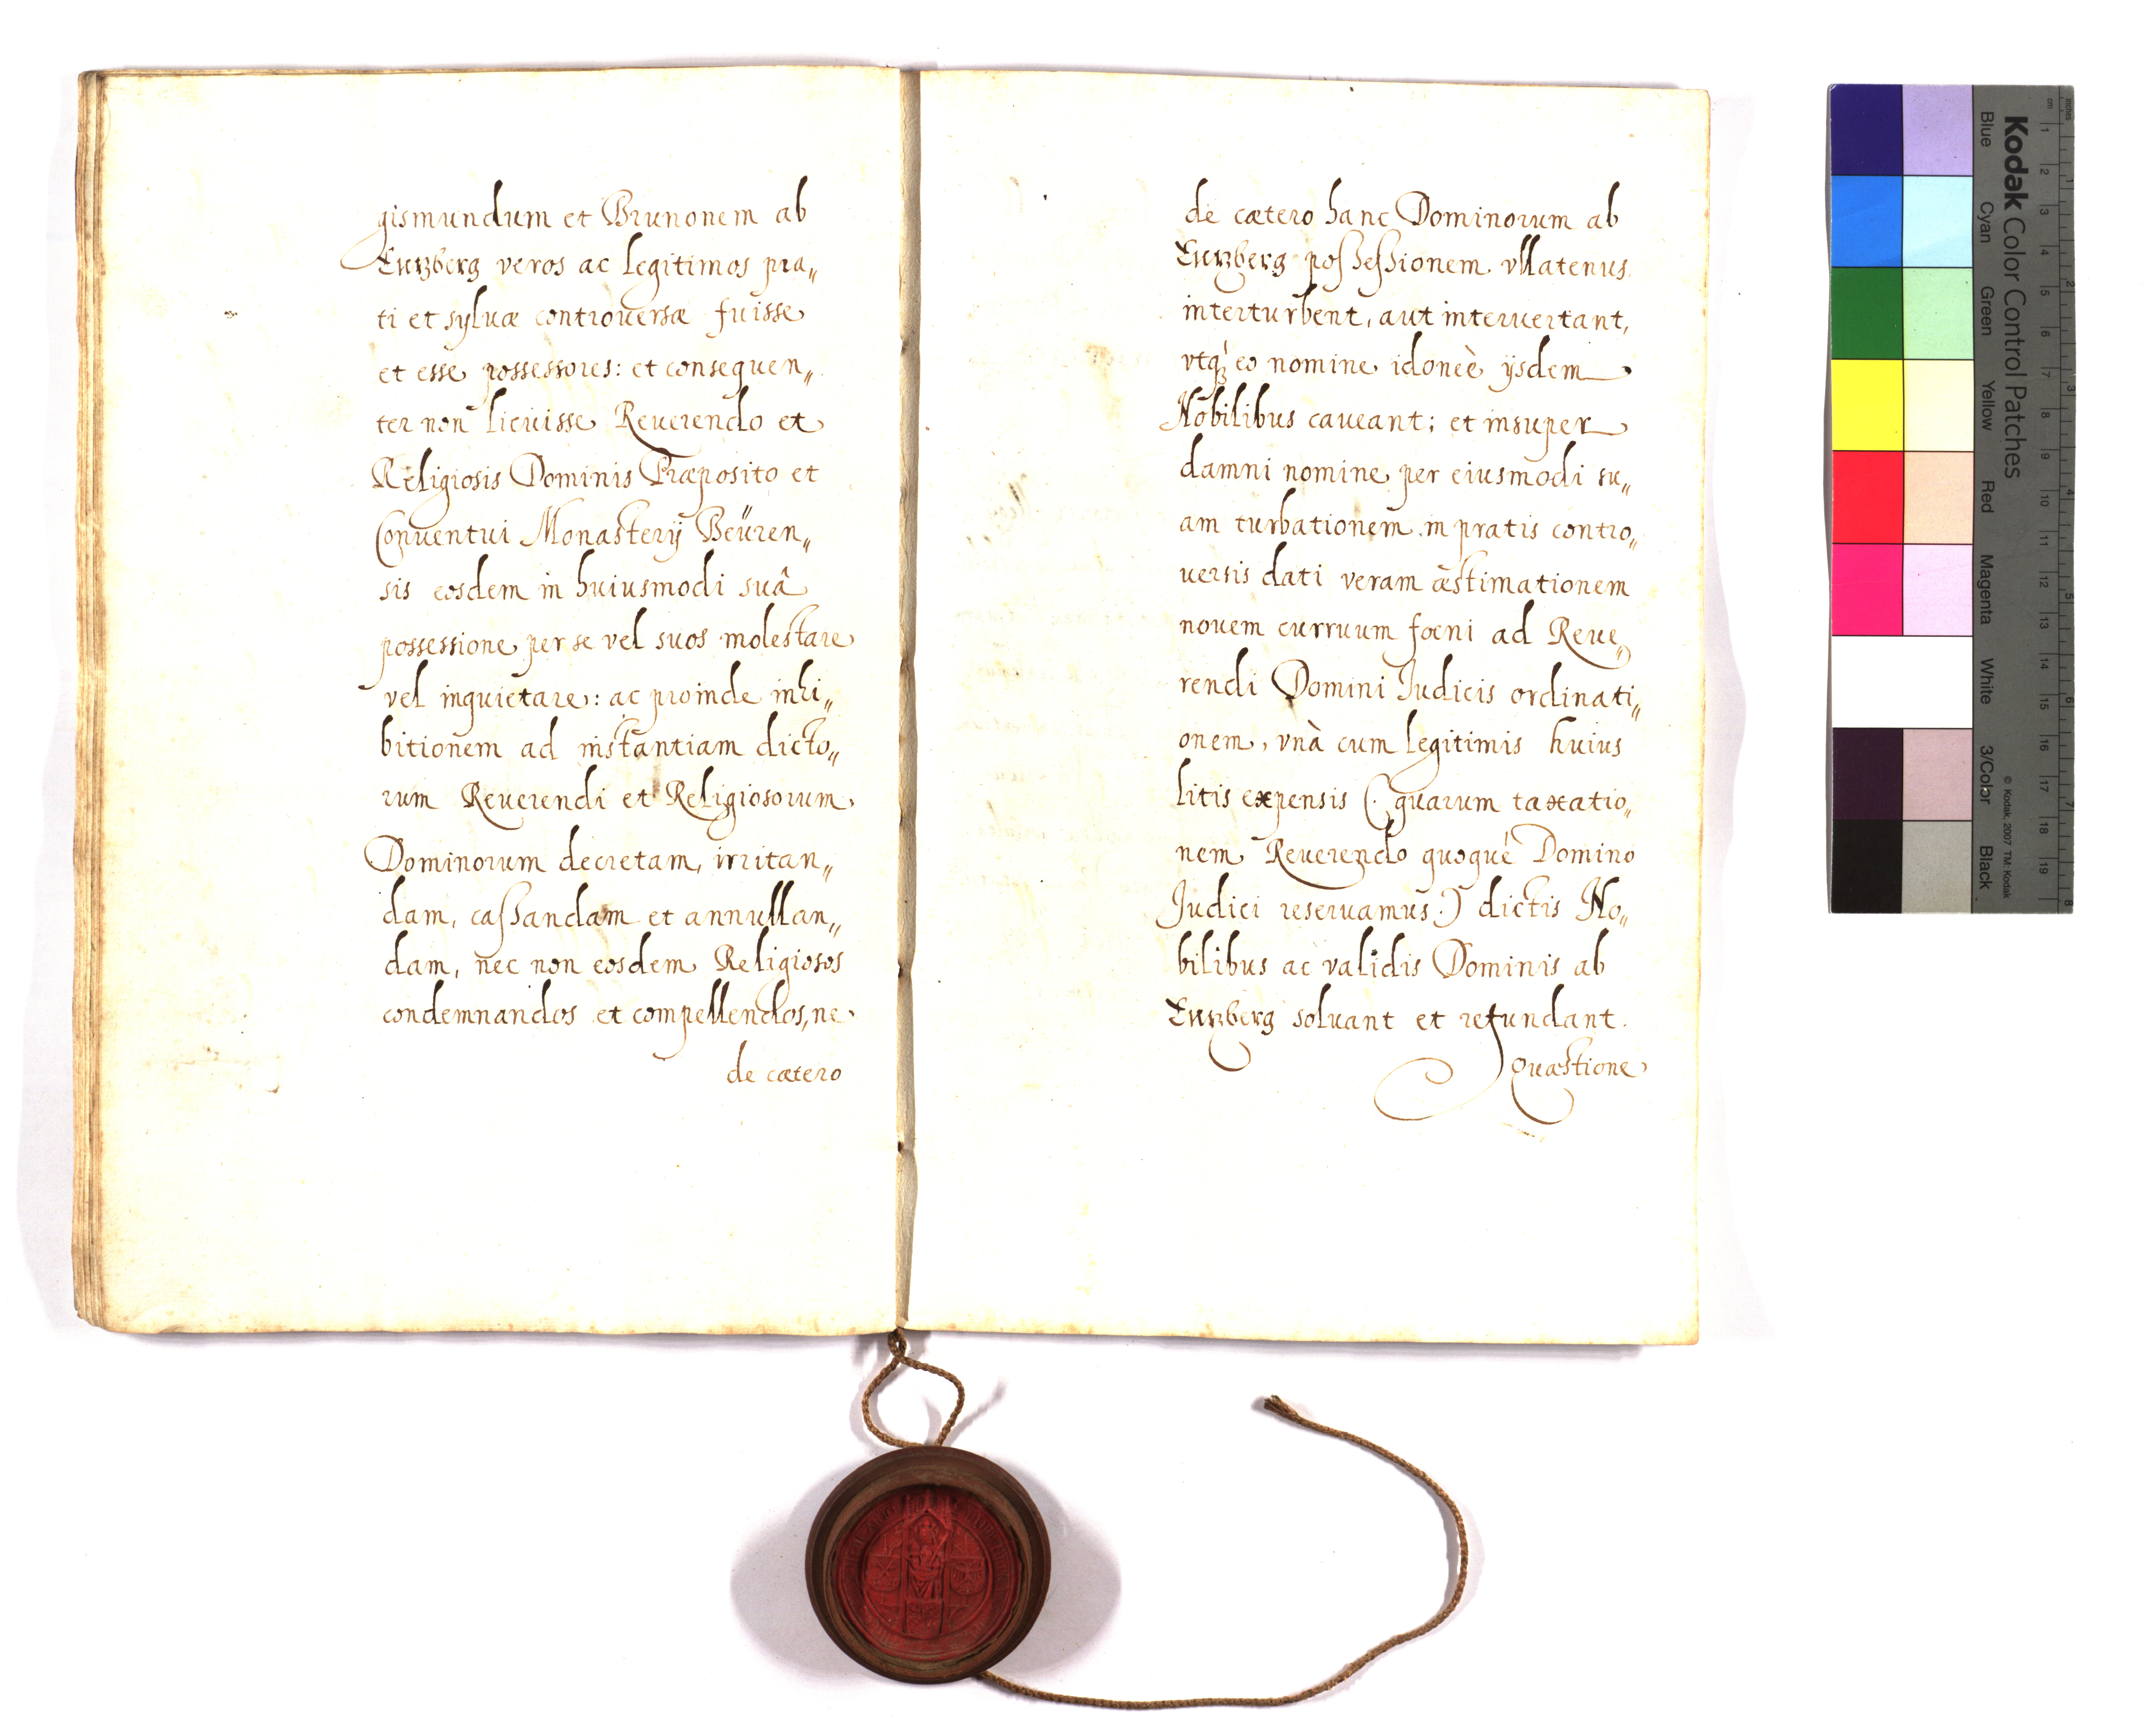 gismundum et Brunonem ab
Entzberg veros ac legitimos pra„
ti et syluæ controuersæ fuisse
et esse possessores: et consequen„
ter non licuisse Reuerendo et
Religiosis Dominis Præposito et
Conuentui Monasterÿ Beüren„
sis eosdem in huiusmodi suâ
possessione per se vel suos molestare
vel inquietare: ac proinde inhi„
bitionem ad instantiam dicto„
rum Reuerendi et Religiosorum
Dominorum decretam, irritan„
dam, cassandam et annullan„
dam, nec non eosdem Religiosos
condemnandos et compellendos, ne
de cætero
de cætero hanc Dominorum ab
Entzberg possessionem vllatenus
interturbent, aut interuertant,
vtq́ꝫ eo nomine idoneè ÿsdem
Nobilibus caueant; et insuper
damni nomine per eiusmodi su„
am turbationem in pratis contro„
uersis dati veram æstimationem
nouem curruum foeni ad Reue„
rendi Domini Judicis ordinati„
onem, vnà cum legitimis huius
litis expensis (. quarum taxatio„
nem Reuerendo quoqué Domino
Judici reseruamus.) dictis No„
bilibus ac validis Dominis ab
Entzberg soluant et refundant.
Quæstione
Kodak Color Control Patches
Blue Cyan Green Yellow Red Magenta White 3/Color Black
© Kodak, 2007 TM: Kodak
cm 1 2 3 4 5 6 7 8 9 10 11 12 13 14 15 16 17 18 19
inches 1 2 3 4 5 6 7 8